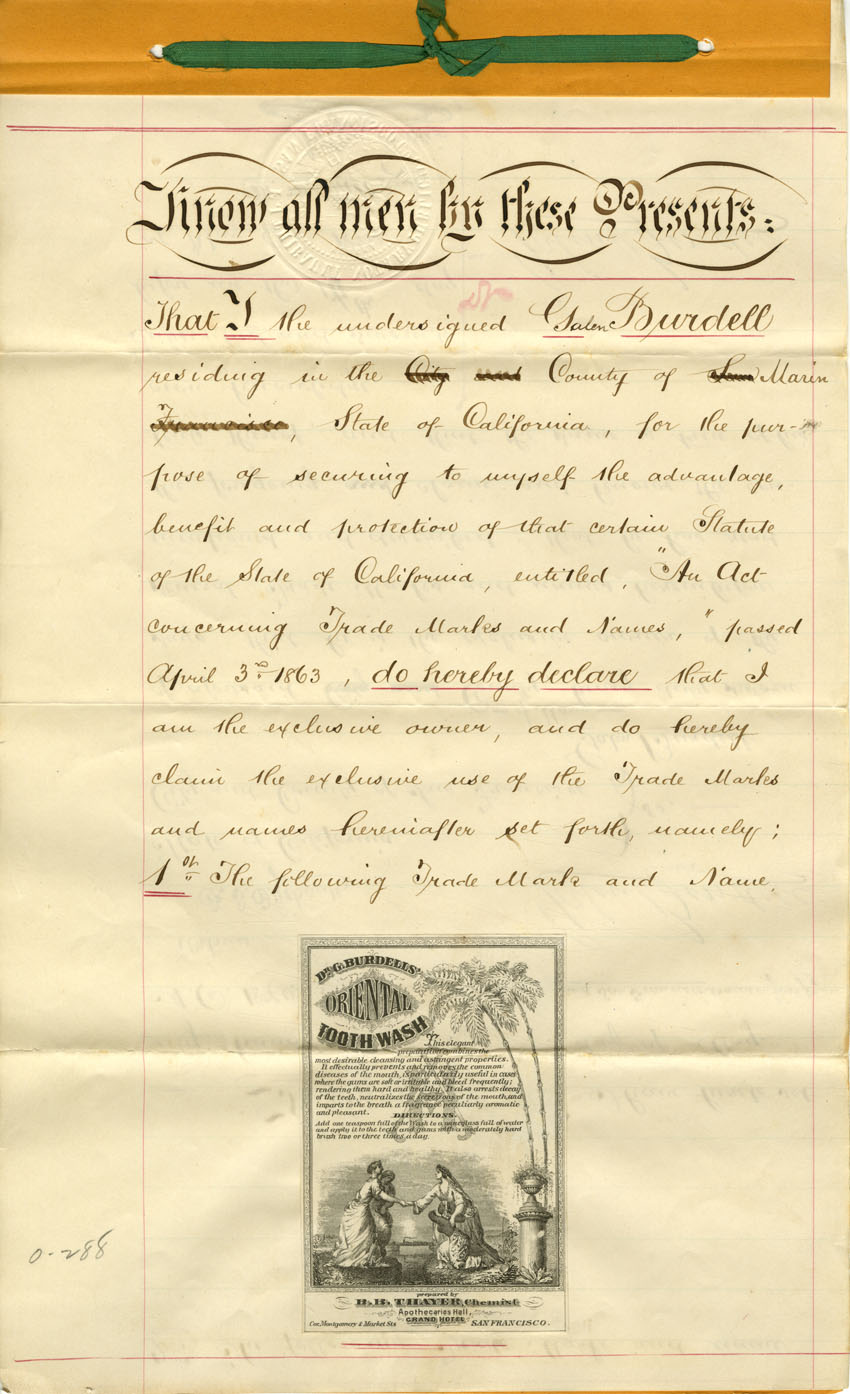 Know all men by these Presents:
That I the undersigned Galen Burdell
residing in the City and County of San Marin
Francisco, State of California, for the pur-
pose of securing to myself the advantage,
benefit and protection of that certain Statute
of the State of California, entitled, "An Act
concerning Trade Marks and Names," passed
April 3rd 1863, do hereby declare that I
am the exclusive owner, and do hereby
claim the exclusive use of the Trade Marks
and names hereinafter set forth, namely;
1st The following Trade Mark and Name.
DR. G. BURDELLS'
ORIENTAL
TOOTH WASH
This elegant
preparation combines the
most desirable cleansing and astringent properties.
It effectually prevents and removes the common
diseases of the mouth, is particularly useful in cases
where the gums are soft or irritable and bleed frequently;
rendering them hard and healthy. It also arrests decay
of the teeth, neutralizes the secretions of the mouth, and
imparts to the breath a fragrance peculiarly aromatic
and pleasant.
DIRECTIONS.
Add one teaspoon full of the Wash to a wineglass full of water
and apply it to the teeth and gums with a moderately hard
brush two or three times a day.
0-288
prepared by
B.B. THAYER, Chemist
Apothecaries Hall,
GRAND HOTEL
Cor. Montgomery & Market Sts SAN FRANCISCO.